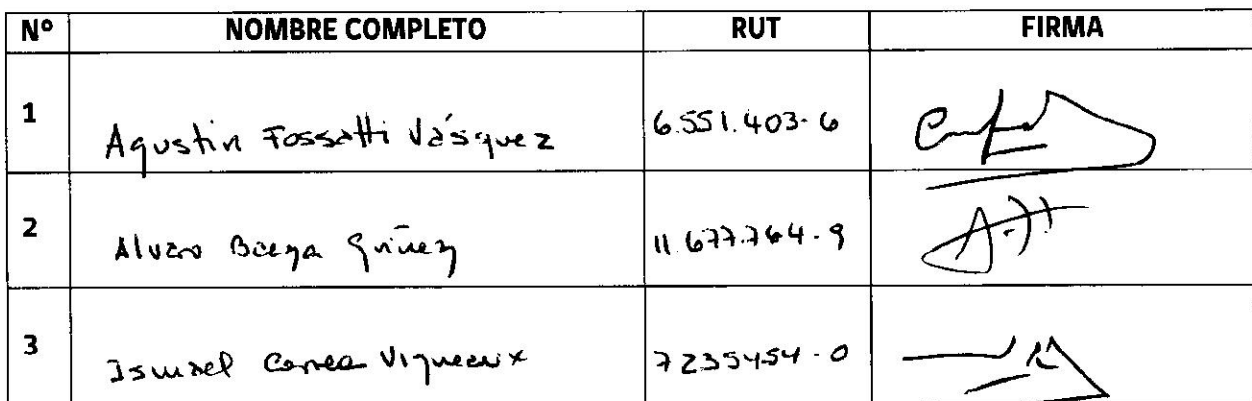 Nº NOMBRE COMPLETO RUT FIRMA
1 Agustin Fossatti Vásquez 6.551.403-6
2 Alvaro Baeza 11.677.764-9
3 Ismael Correa 7235454-0